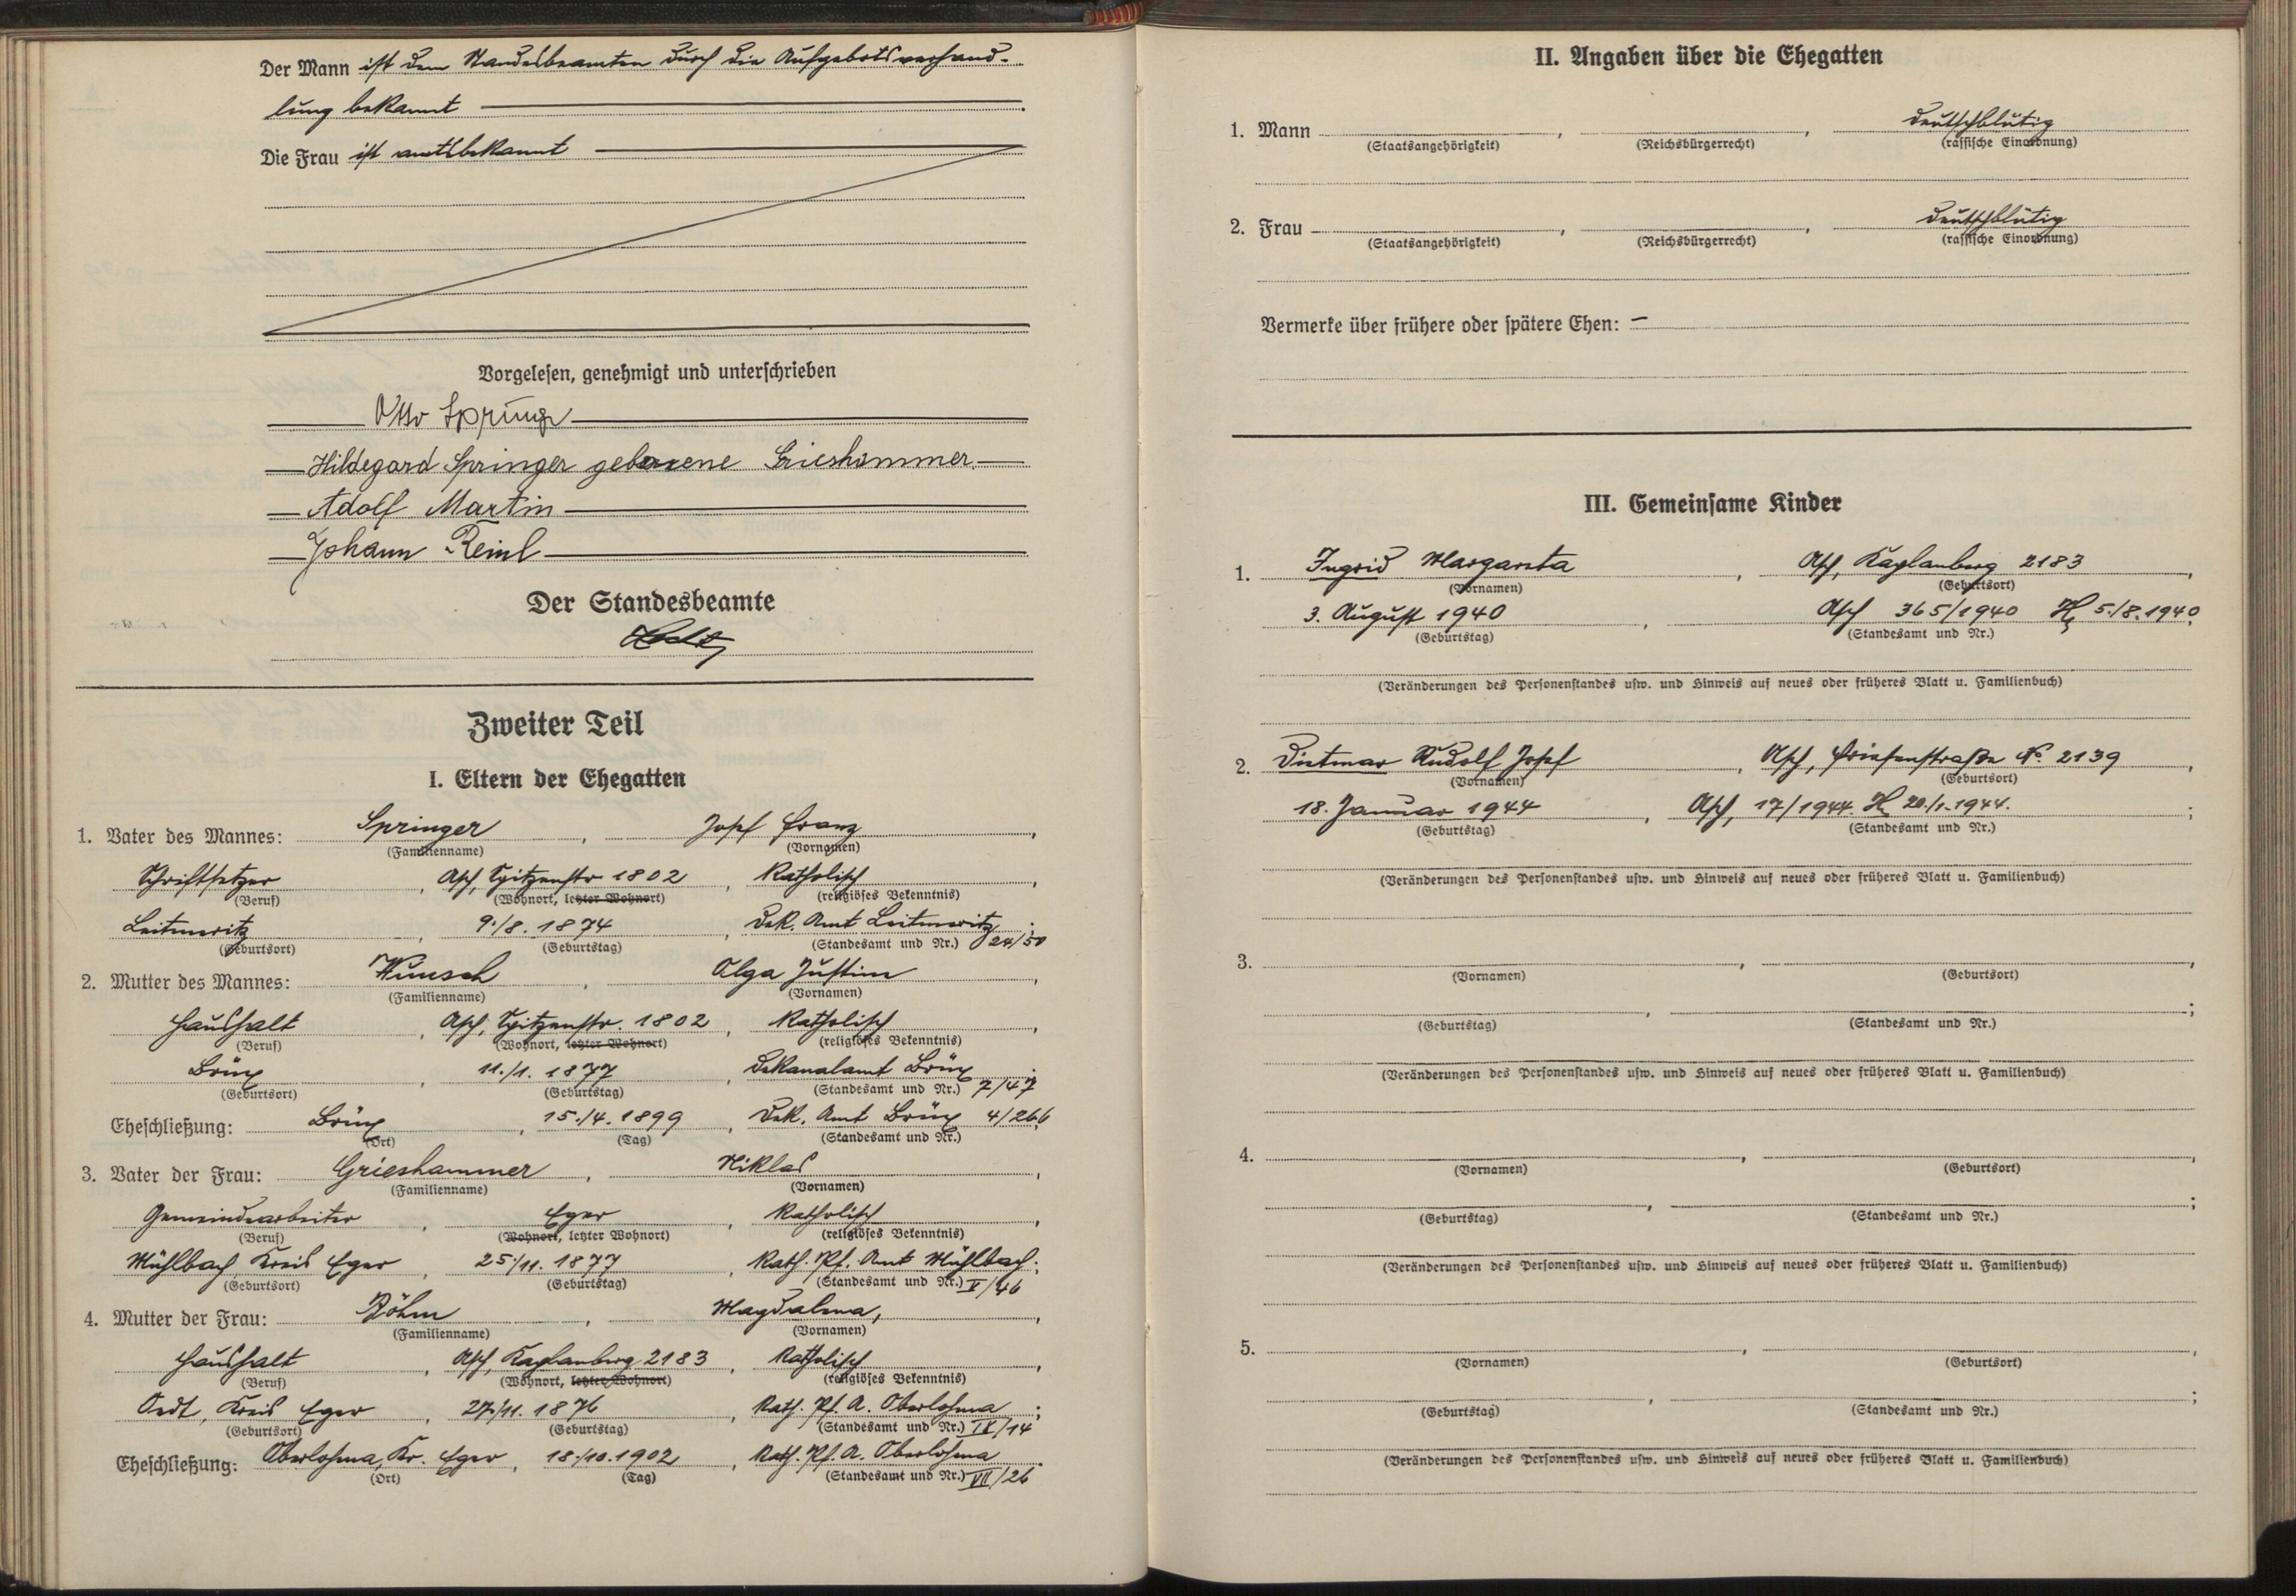 Der Mann ist dem Standesbeamten durch die Aufgebotsverhand-
lung bekannt
Die Frau ist amtsbekannt
Vorgelesen, genehmigt und unterschrieben
Otto Springer
Hildegard Springer geborene Grieshammer
Adolf Martin
Johann Reinl
Der Standesbeamte
Zweiter Teil
I. Eltern der Ehegatten
1. Vater des Mannes: Springer, Josef Franz,
(Familienname) (Vornamen)
Schriftsetzer, Asch, Spitzenstr 1802, Katholisch,
(Beruf) (Wohnort, letzter Wohnort) (religiöses Bekenntnis)
Leitmeritz, 9./8. 1874, Dek. Amt Leitmeritz; 24/50
(Geburtsort) (Geburtstag) (Standesamt und Nr.)
2. Mutter des Mannes: Wunsch, Olga Justine,
(Familienname) (Vornamen)
Haushalt, Asch, Spitzenstr. 1802, Katholisch,
(Beruf) (Wohnort, letzter Wohnort) (religiöses Bekenntnis)
Brüx, 11./1. 1877, Dekanalamt Brüx; 7/47
(Geburtsort) (Geburtstag) (Standesamt und Nr.)
Eheschließung: Brüx, 15./4. 1899, Dek. Amt Brüx 4/266
(Ort) (Tag) (Standesamt und Nr.)
3. Vater der Frau: Grieshammer, Niklas,
(Familienname) (Vornamen)
Gemeindearbeiter, Eger, Katholisch,
(Beruf) (Wohnort, letzter Wohnort) (religiöses Bekenntnis)
Mühlbach, Kreis Eger, 25./11. 1877, Kath. Pf. Amt Mühlbach; V/46
(Geburtsort) (Geburtstag) (Standesamt und Nr.)
4. Mutter der Frau: Böhm, Magdalena,
(Familienname) (Vornamen)
Haushalt, Asch, Kaplanberg 2183, Katholisch,
(Beruf) (Wohnort, letzter Wohnort) (religiöses Bekenntnis)
Oedt, Kreis Eger, 27./11. 1876, Kath. Pf. A. Oberlohma; IX/14
(Geburtsort) (Geburtstag) (Standesamt und Nr.)
Eheschließung: Oberlohma, Kr. Eger, 18./10. 1902, Kath. Pf. A. Oberlohma VII/26
(Ort) (Tag) (Standesamt und Nr.)
II. Angaben über die Ehegatten
1. Mann , , deutschblütig
(Staatsangehörigkeit) (Reichsbürgerrecht) (rassische Einordnung)
2. Frau , , deutschblütig
(Staatsangehörigkeit) (Reichsbürgerrecht) (rassische Einordnung)
Vermerke über frühere oder spätere Ehen: –
III. Gemeinsame Kinder
1. Ingrid Margareta, Asch, Kaplanberg 2183,
(Vornamen) (Geburtsort)
3. August 1940, Asch 365/1940 5./8. 1940
(Geburtstag) (Standesamt und Nr.)
(Veränderungen des Personenstandes usw. und Hinweis auf neues oder früheres Blatt u. Familienbuch)
2. Dietmar Rudolf Josef, Asch, Friesenstraße No. 2139,
(Vornamen) (Geburtsort)
18. Januar 1944, Asch, 17/1944. 20./1. 1944.;
(Geburtstag) (Standesamt und Nr.)
(Veränderungen des Personenstandes usw. und Hinweis auf neues oder früheres Blatt u. Familienbuch)
3. , ,
(Vornamen) (Geburtsort)
, ;
(Geburtstag) (Standesamt und Nr.)
(Veränderungen des Personenstandes usw. und Hinweis auf neues oder früheres Blatt u. Familienbuch)
4. , ,
(Vornamen) (Geburtsort)
, ;
(Geburtstag) (Standesamt und Nr.)
(Veränderungen des Personenstandes usw. und Hinweis auf neues oder früheres Blatt u. Familienbuch)
5. , ,
(Vornamen) (Geburtsort)
, ;
(Geburtstag) (Standesamt und Nr.)
(Veränderungen des Personenstandes usw. und Hinweis auf neues oder früheres Blatt u. Familienbuch)